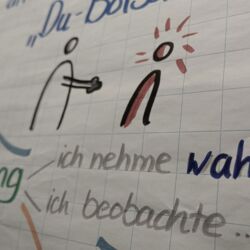 „Du-Bots
ich nehme wahr
ng
ich beobachte ...